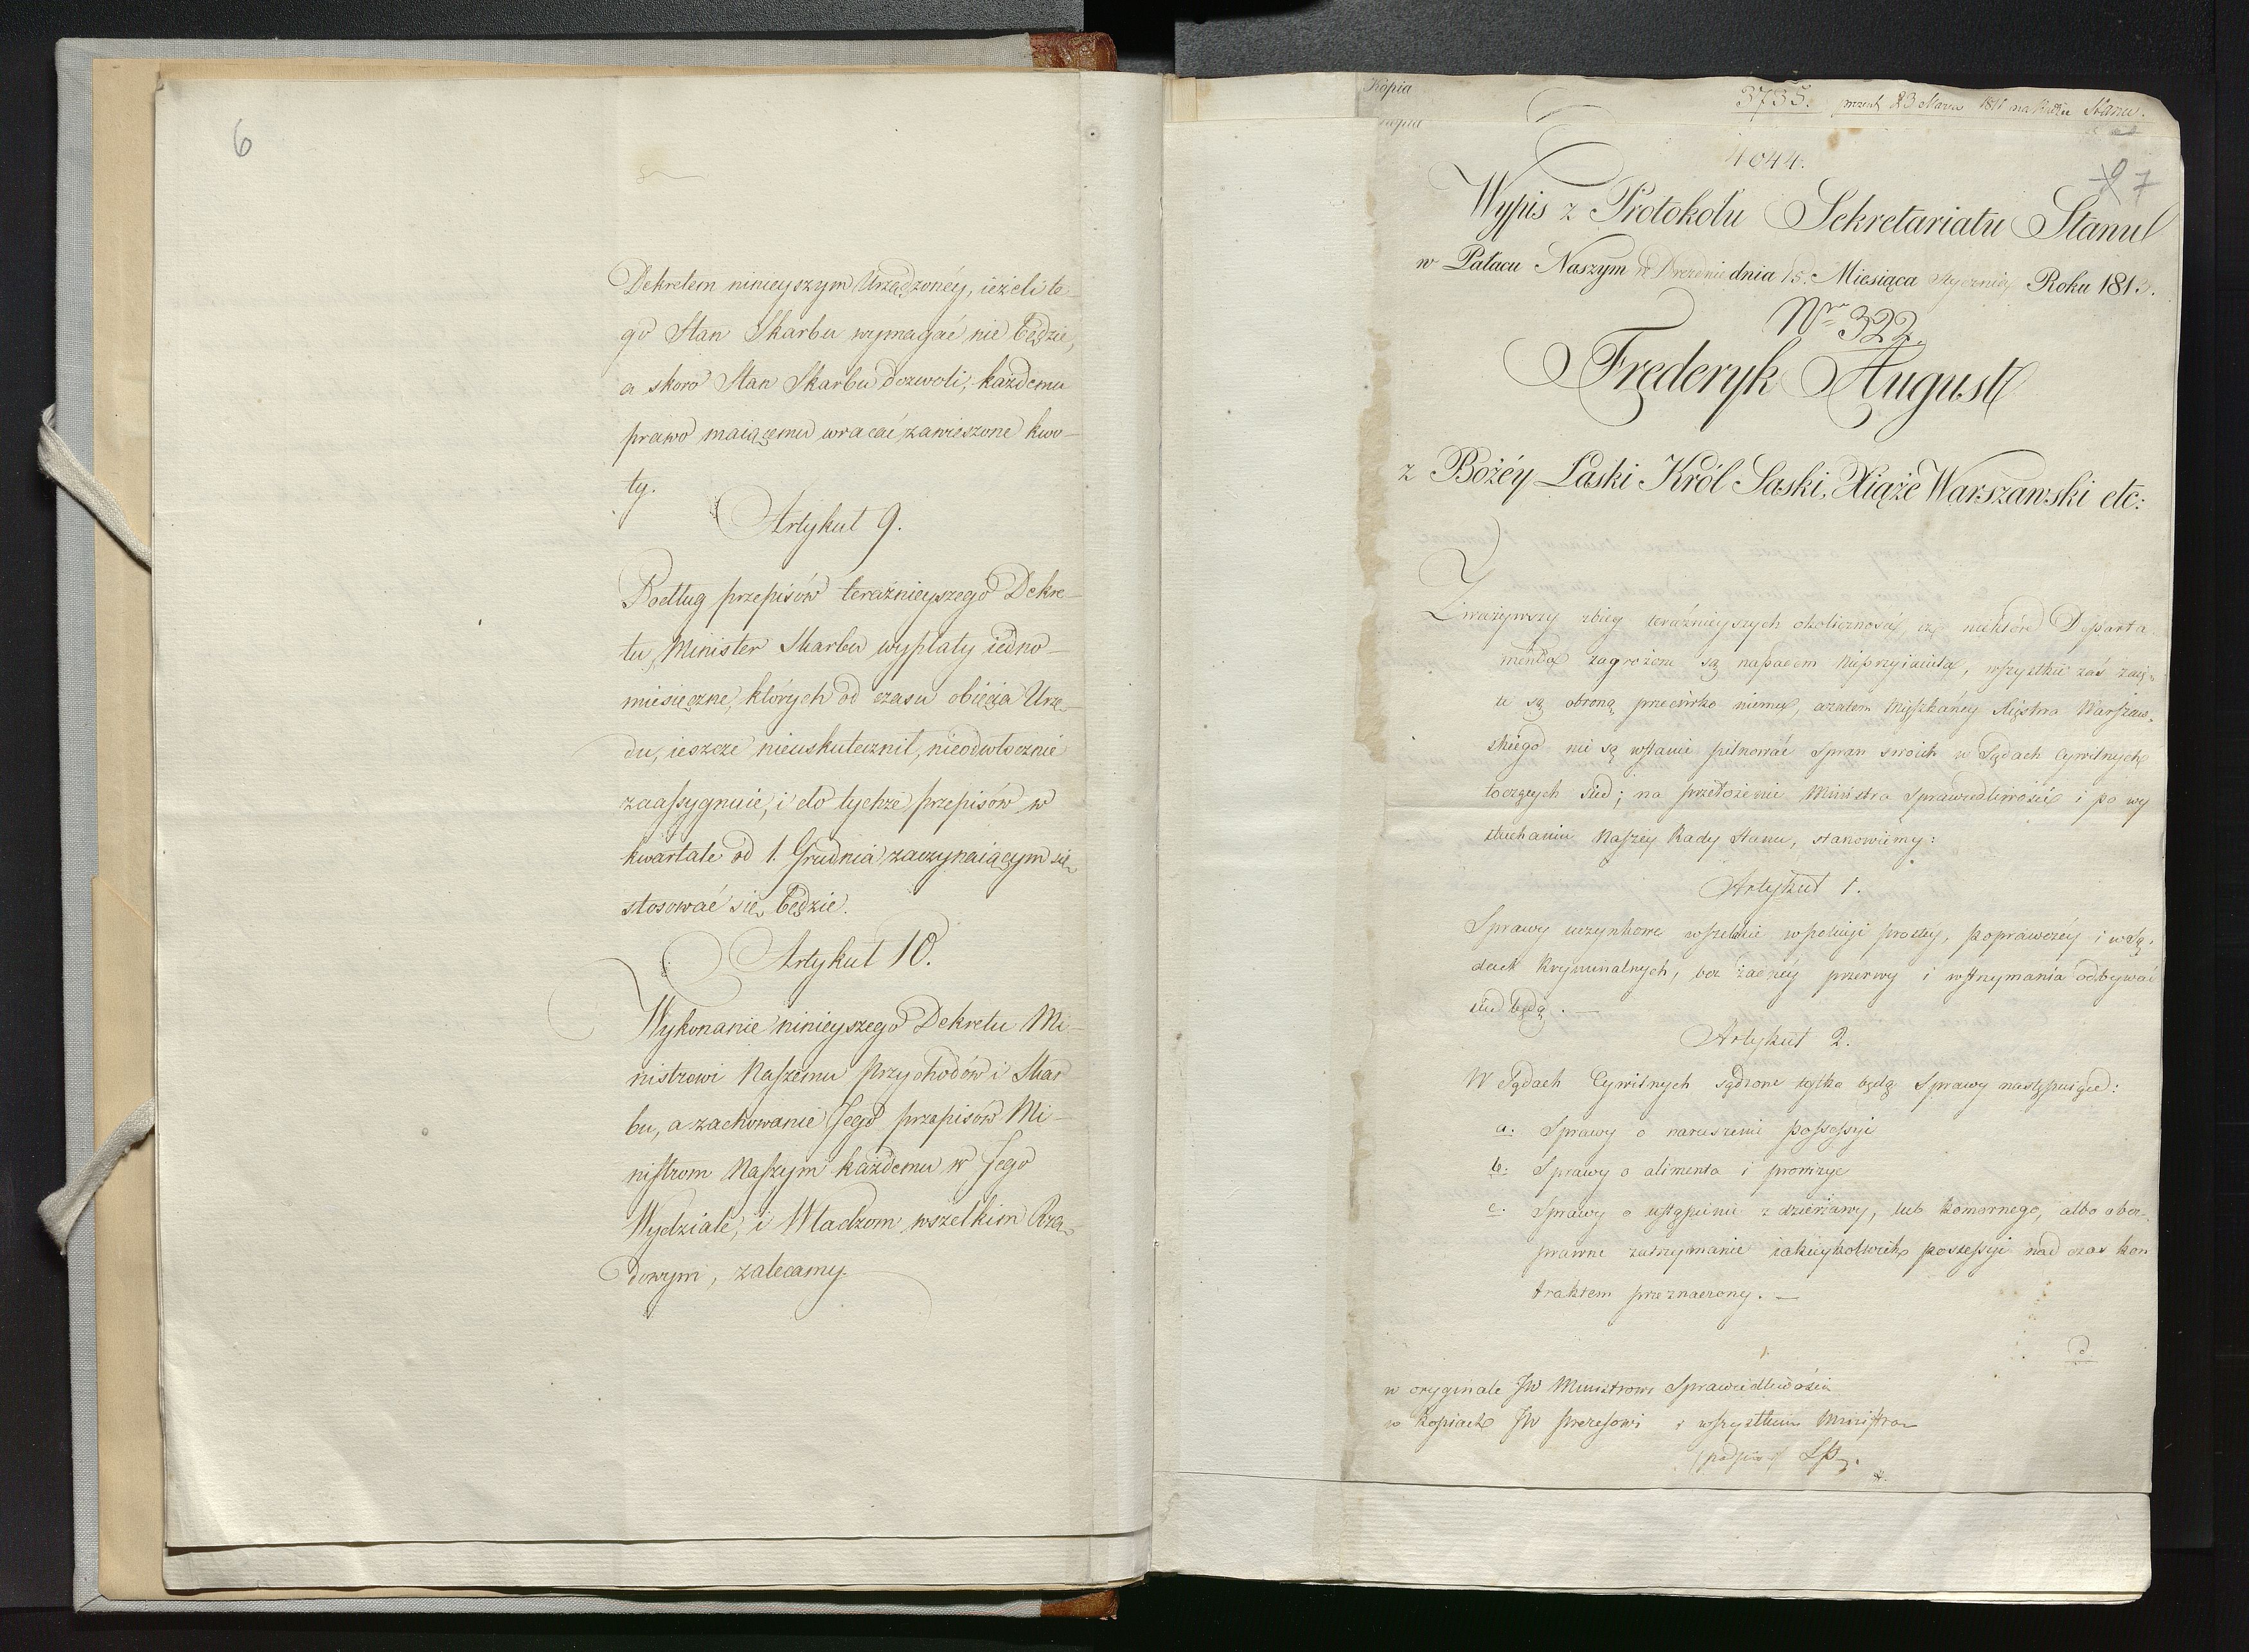 6
Dekretem ninieyszym Urządzonéy, ieżeli te-
go Stan Skarbu wymagać nie będzie,
a skoro Stan Skarbu dozwoli, każdemu
prawo maiącemu wracać zawieszone kwo-
ty.
Artykuł 9.
Podług przepisów teraźnieyszego Dekre-
tu, Minister Skarbu wypłaty iedno-
miesięczne, których od czasu obięcia Urzę-
du, ieszcze nieuskutecznił, nieodwłocznie
zaassygnuie, i do tychże przepisów w
kwartale od 1. Grudnia zaczynaiącym się
stosować się będzie.
Artykuł 10.
Wykonanie ninieyszego Dekretu Mi-
nistrowi Naszemu Przychodów i Skar
bu, a zachowanie Jego przepisów Mi-
nistrom Naszym każdemu w Jego
Wydziale, i Władzom wszelkim Rzą-
dowym, zalecamy.
Kopia
3735. 23 Marca na Stanu.
4044.
7
Wypis z Protokółu Sekretariatu Stanu
w Pałacu Naszym w Dreznie dnia 15. Miesiąca Stycznia Roku 1813.
Nro 322.
Fręderyk August
z Bożéy Łaski Król Saski, Xiąże Warszawski etc:
Zważywszy zbieg teraźnieyszych okoliczności, iż niektóre Departa-
menta zagrożone są napadem nieprzyiaciela, wszystkie zaś zaię-
te są obroną przeciwko niemu, azatem Mięszkańcy Xięstwa Warszaw-
skiego nie są wstanie pilnować spraw swoich w Sądach Cywilnych
toczących się; na przełożenie Ministra Sprawiedliwości i po wy
słuchaniu Naszey Rady Stanu, stanowiemy:
Artykuł 1.
Sprawy uczynkowe wszelkie w policyi prostey, poprawczéy i w Są-
dach Kryminalnych, bez żadnéy przerwy i wstrzymania odbywać
się będą. —
Artykuł 2.
W Sądach Cywilnych sądzone tylko będą Sprawy następuiące:
a. Sprawy o naruszenie possessyi
b. Sprawy o alimenta i prowizye
c. Sprawy o ustąpienie z dzierżawy, lub komornego, albo
prawne zatrzymanie iakieykolwiek possessyi nad czas kon
traktem przeznaczony. —
d
w oryginale JW Ministrowi Sprawiedliwości
w kopiach JW Prezesowi i wszystkim Ministrom